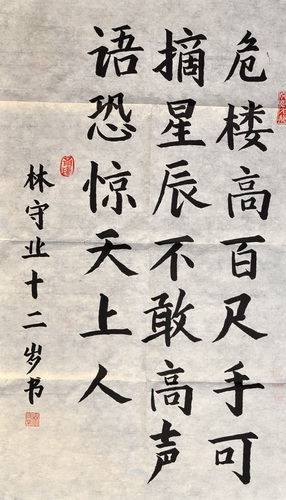 危楼高百尺手可
摘星辰不敢高声
语恐惊天上人
林守业十二岁书